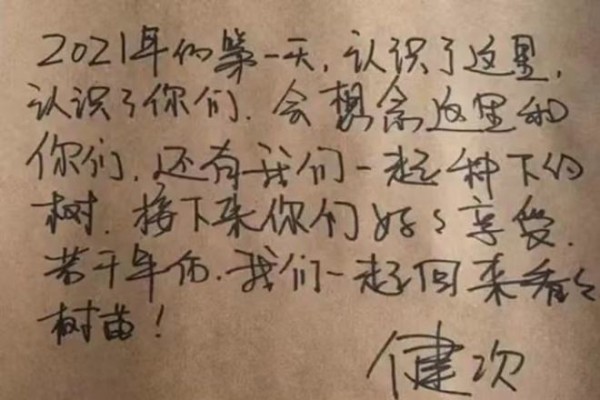 2021年的第一天,认识了这里,
认识了你们.会想念这里和
你们,还有我们一起种下的
树.接下来你们好々享受.
若干年后.我们一起回来看々
树苗!
健次